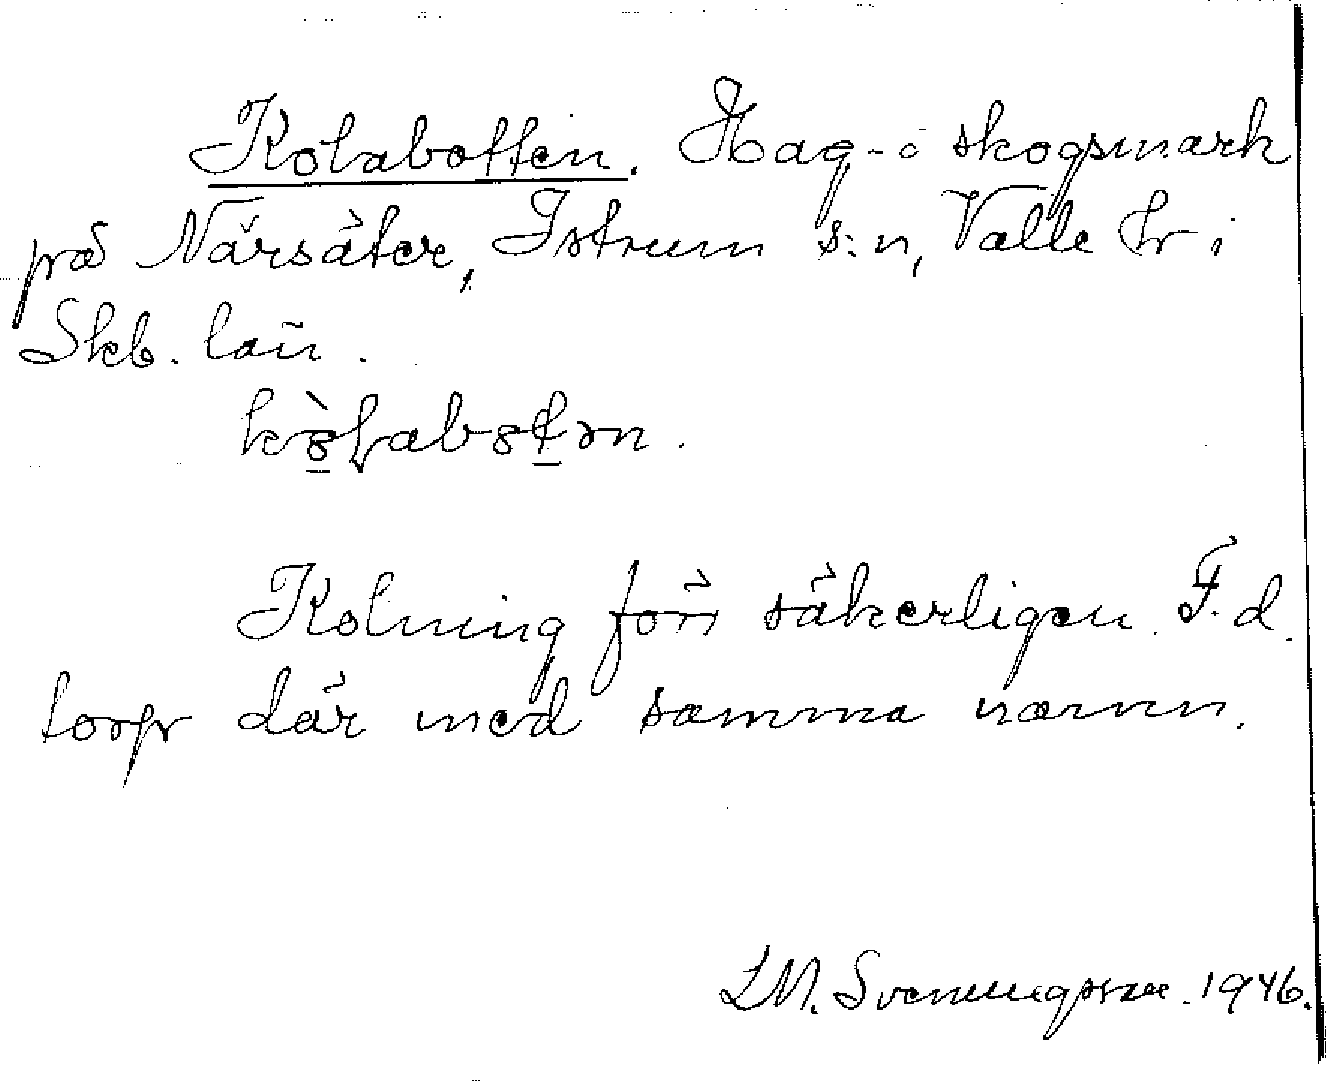 Kolabotten. Hag- o skogsmark
på Närsäter, Istrum s:n, Valle hr i
Skb. län.
Kolning förr säkerligen. F. d.
torp där med samma namn.
LM. Svenungsson. 1946.